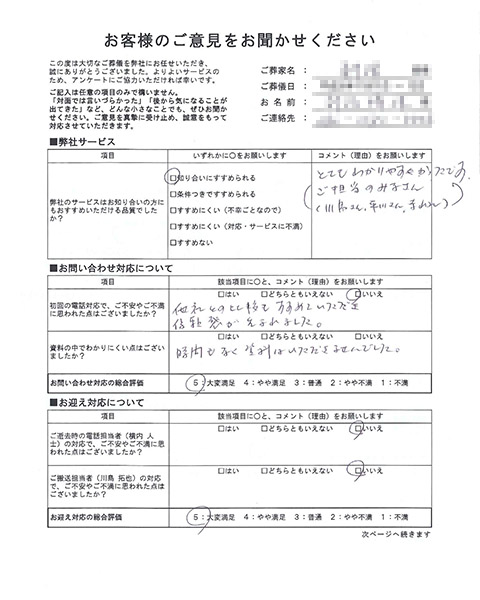 お客様のご意見をお聞かせください
この度は大切なご葬儀を弊社にお任せいただき、
誠にありがとうございました。よりよいサービスの
ため、アンケートにご協力いただければ幸いです。
ご記入は任意の項目のみで構いません。
「対面では言いづらかった」「後から気になることが
出てきた」など、どんな小さなことでも、ぜひお聞か
せください。ご意見を真摯に受け止め、誠意をもって
対応させていただきます。
ご葬家名：
ご葬儀日：
お名前：
ご連絡先：
■弊社サービス
項目 いずれかに○をお願いします コメント（理由）をお願いします
弊社のサービスはお知り合いの方に
もおすすめいただける品質でした
か？
□知り合いにすすめられる
□条件つきですすめられる
□すすめにくい（不幸ごとなので）
□すすめにくい（対応・サービスに不満）
□すすめない
とてもわかりやすかったです。
ご担当のみなさん
■お問い合わせ対応について
項目 該当項目に○と、コメント（理由）をお願いします
初回の電話対応で、ご不安やご不満
に思われた点はございましたか？
□はい □どちらともいえない □いいえ
他社との比較もすすめていただき
信頼感が生まれました。
資料の中でわかりにくい点はござい
ましたか？
時間もなく資料はいただきませんでした。
お問い合わせ対応の総合評価 5：大変満足 4：やや満足 3：普通 2：やや不満 1：不満
■お迎え対応について
項目 該当項目に○と、コメント（理由）をお願いします
ご逝去時の電話担当者（横内 人
士）の対応で、ご不安やご不満に思
われた点はございましたか？
□はい □どちらともいえない □いいえ
ご搬送担当者（川島 拓也）の対応
で、ご不安やご不満に思われた点は
ございましたか？
□はい □どちらともいえない □いいえ
お迎え対応の総合評価 5：大変満足 4：やや満足 3：普通 2：やや不満 1：不満
次ページへ続きます